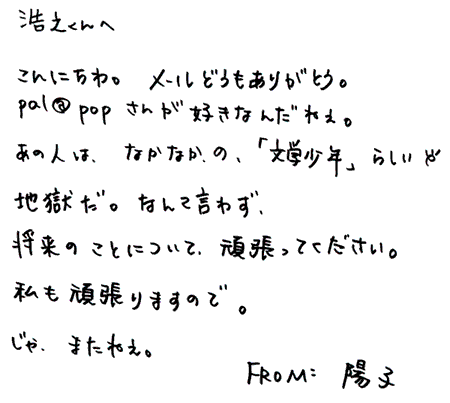 浩之くんへ
こんにちわ。 メールどうもありがとう。
pal@popさんが好きなんだねぇ。
あの人は、なかなかの、「文学少年」らしいぞ
地獄だ。なんて言わず、
将来のことについて、頑張ってください。
私も頑張りますので。
じゃ、またねぇ。
FROM: 陽子